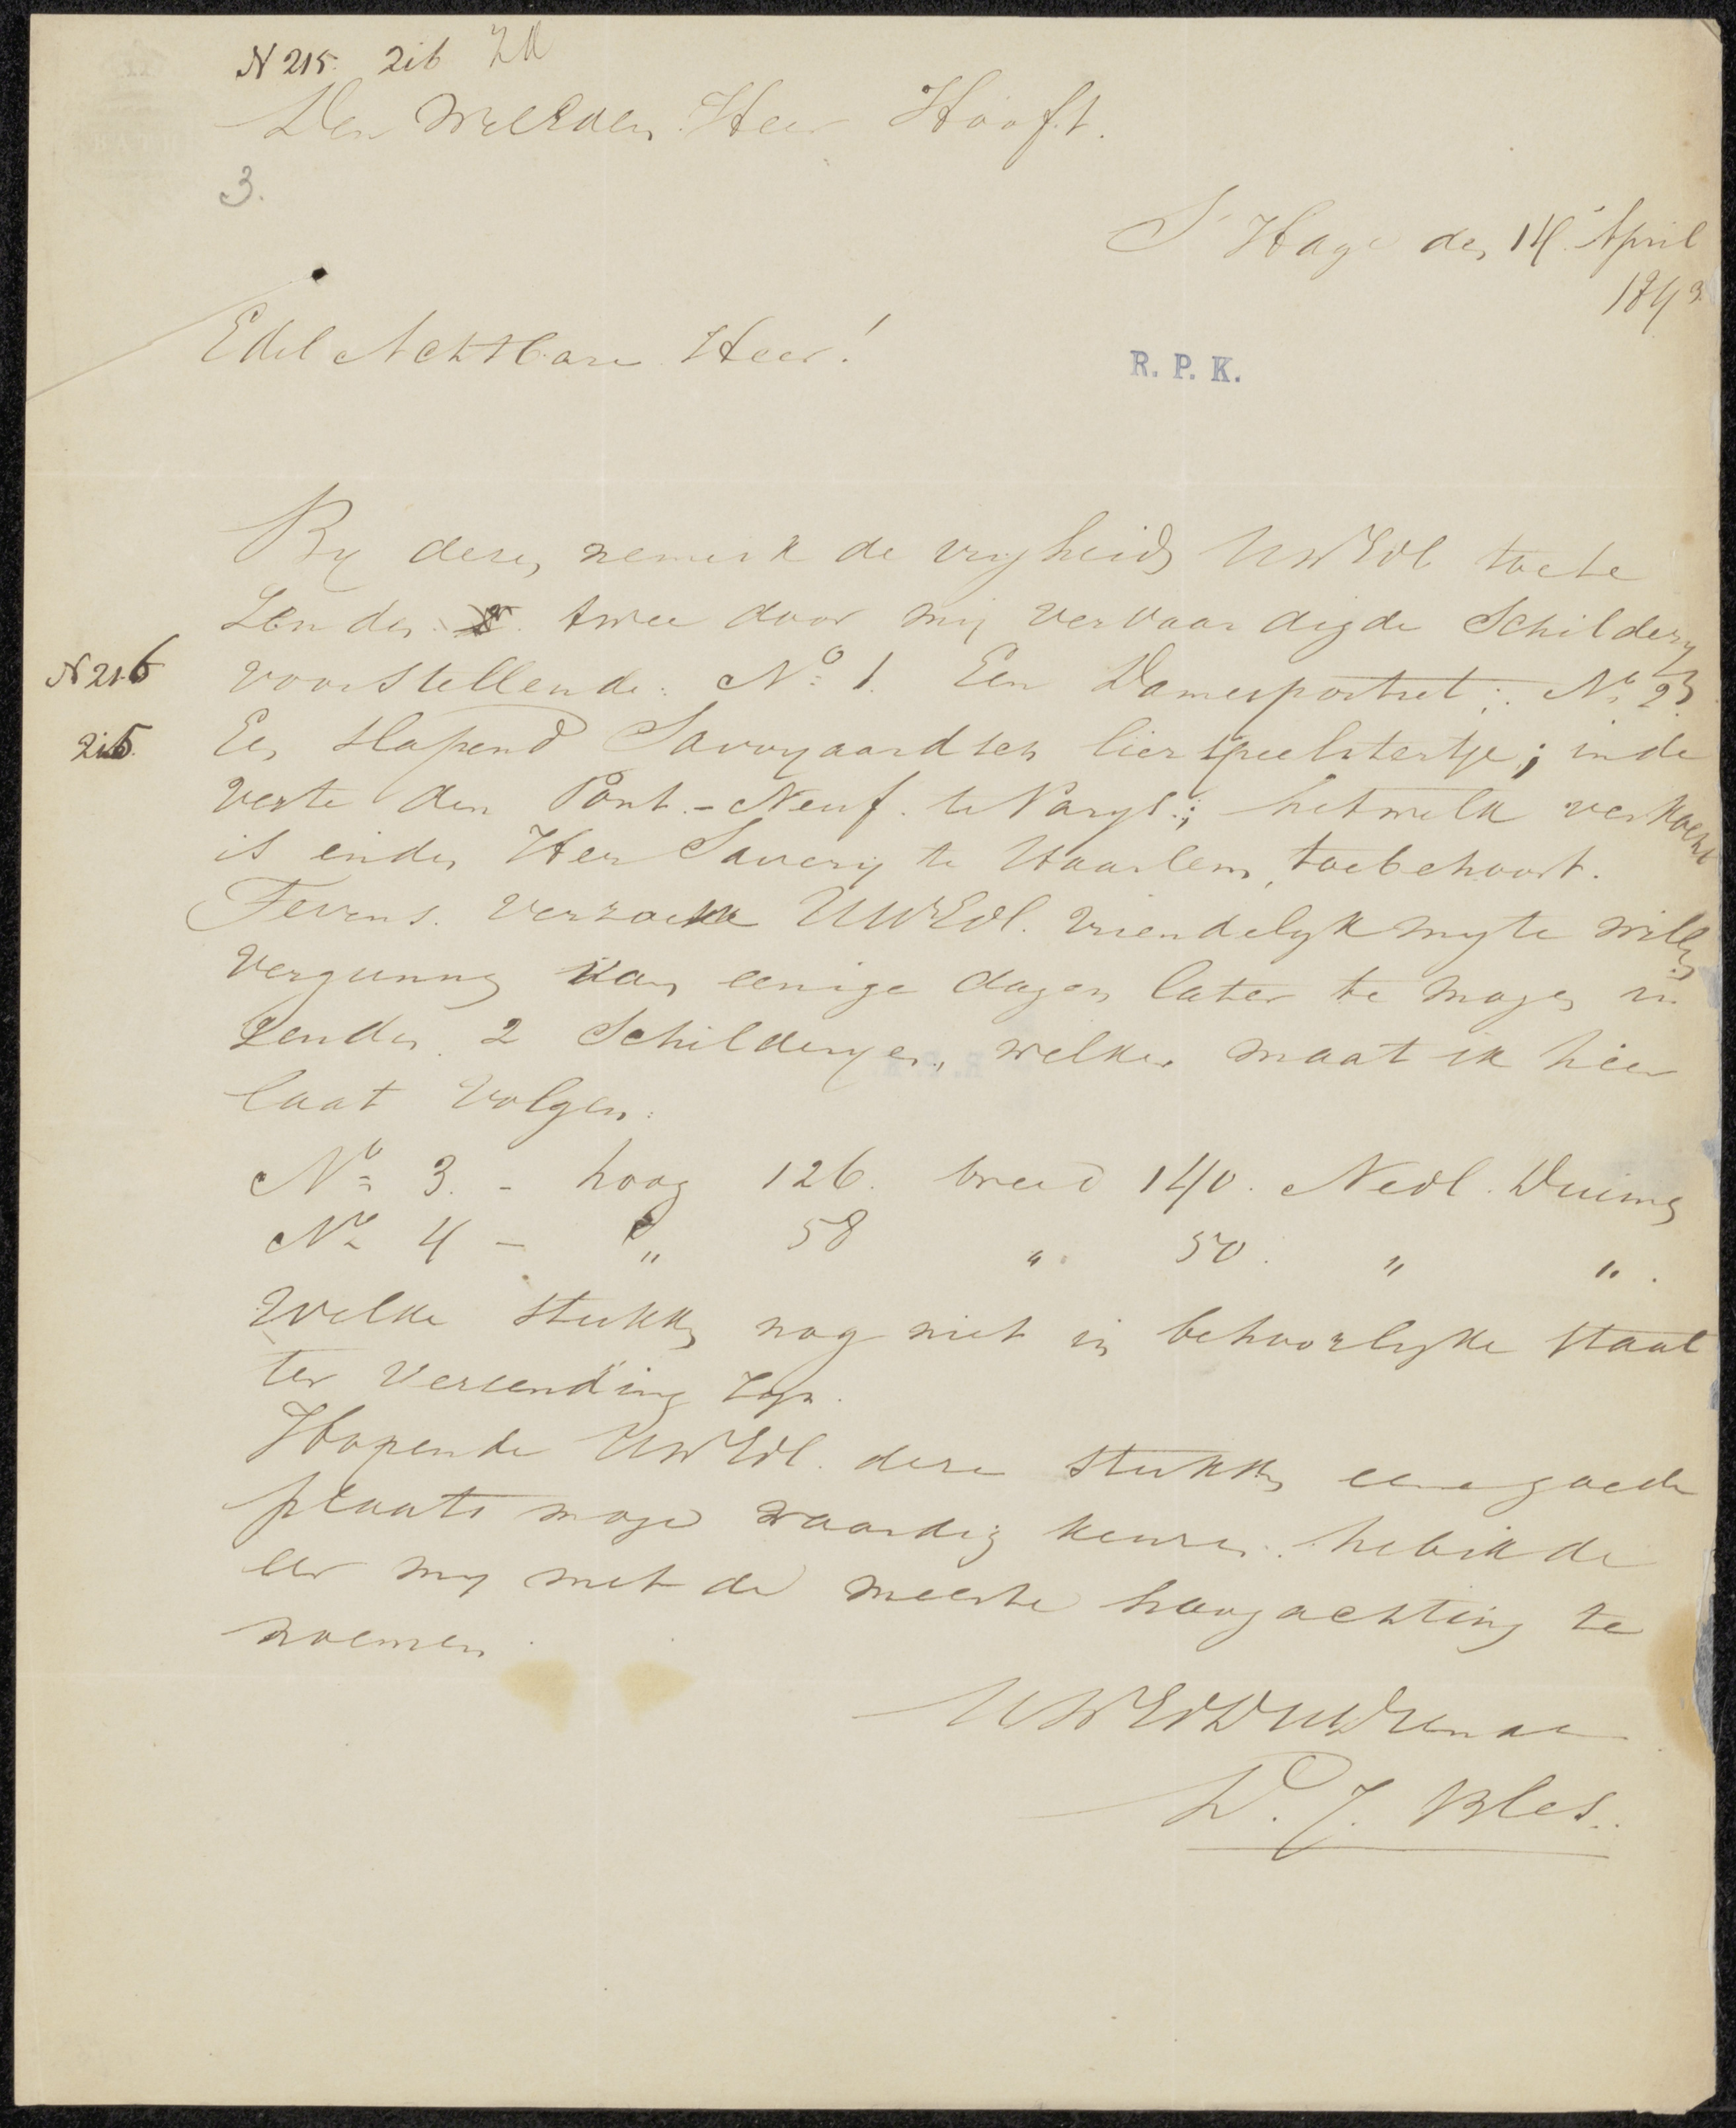 N 215. 216
Den WelEdelen Heer Hooft.
3.
S' Hage den 14 April
1843.
Edel Achtbare Heer!
R. P. K.
By deze, neem ik de vryheid UWEdl toe te
zenden twee door mij vervaardigde Schilderyen
N 216 voorstellende: No. 1. Een Damesportret; No 2.
215. Een Slapend Savoyaardsch lierspeelstertje; in de
verte den Pont-Neuf te Parys; hetwelk verkocht
is en den Heer Savery te Haarlem, toebehoort.
Tevens verzoeke UWEdl. vriendelyk my te willen
vergunnen een eenige dagen later te mogen in
zenden 2 Schilderyen, welker maat ik hier
laat volgen:
No 3. - hoog 126. breed 140. Nedl. Duimen
No 4 - " 58 " 50. " ".
Welke stukken nog niet in behoorlyke staat
ter verzending zyn.
Hopende UWEdl. deze stukken eene goede
plaats moge waardig keuren. heb ik de
eer my met de meeste hoogachting te
noemen
UWEdDWDienaar
D. J. Bles.